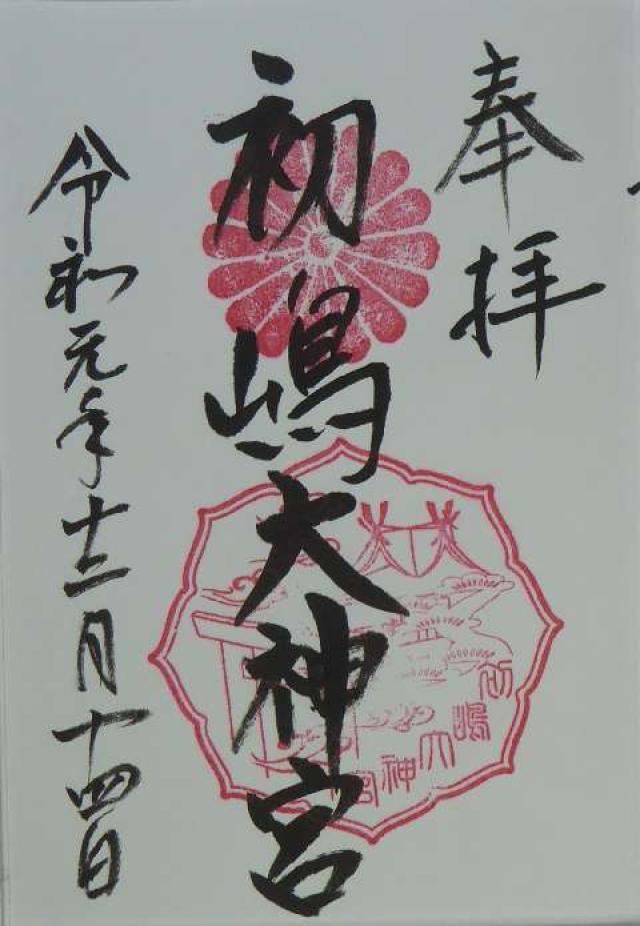 奉拝
初嶋大神宮
令和元年十二月十四日
初嶋大神宮